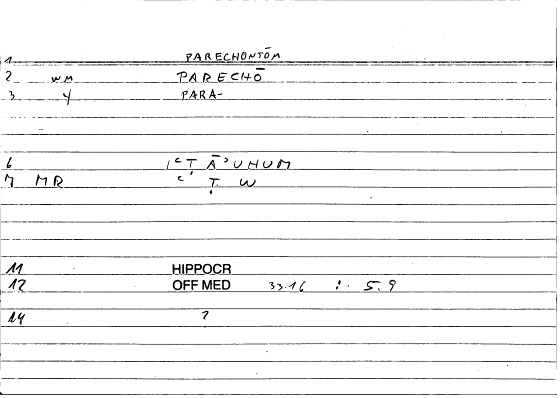 1 PARECHONTŌM
2 WM PARECHŌ
3 Y PARA-
6 ICT Ā UHUM
7 MR C T. W
11 HIPPOCR
12 OFF MED 33.16 : 5.9
14 ?